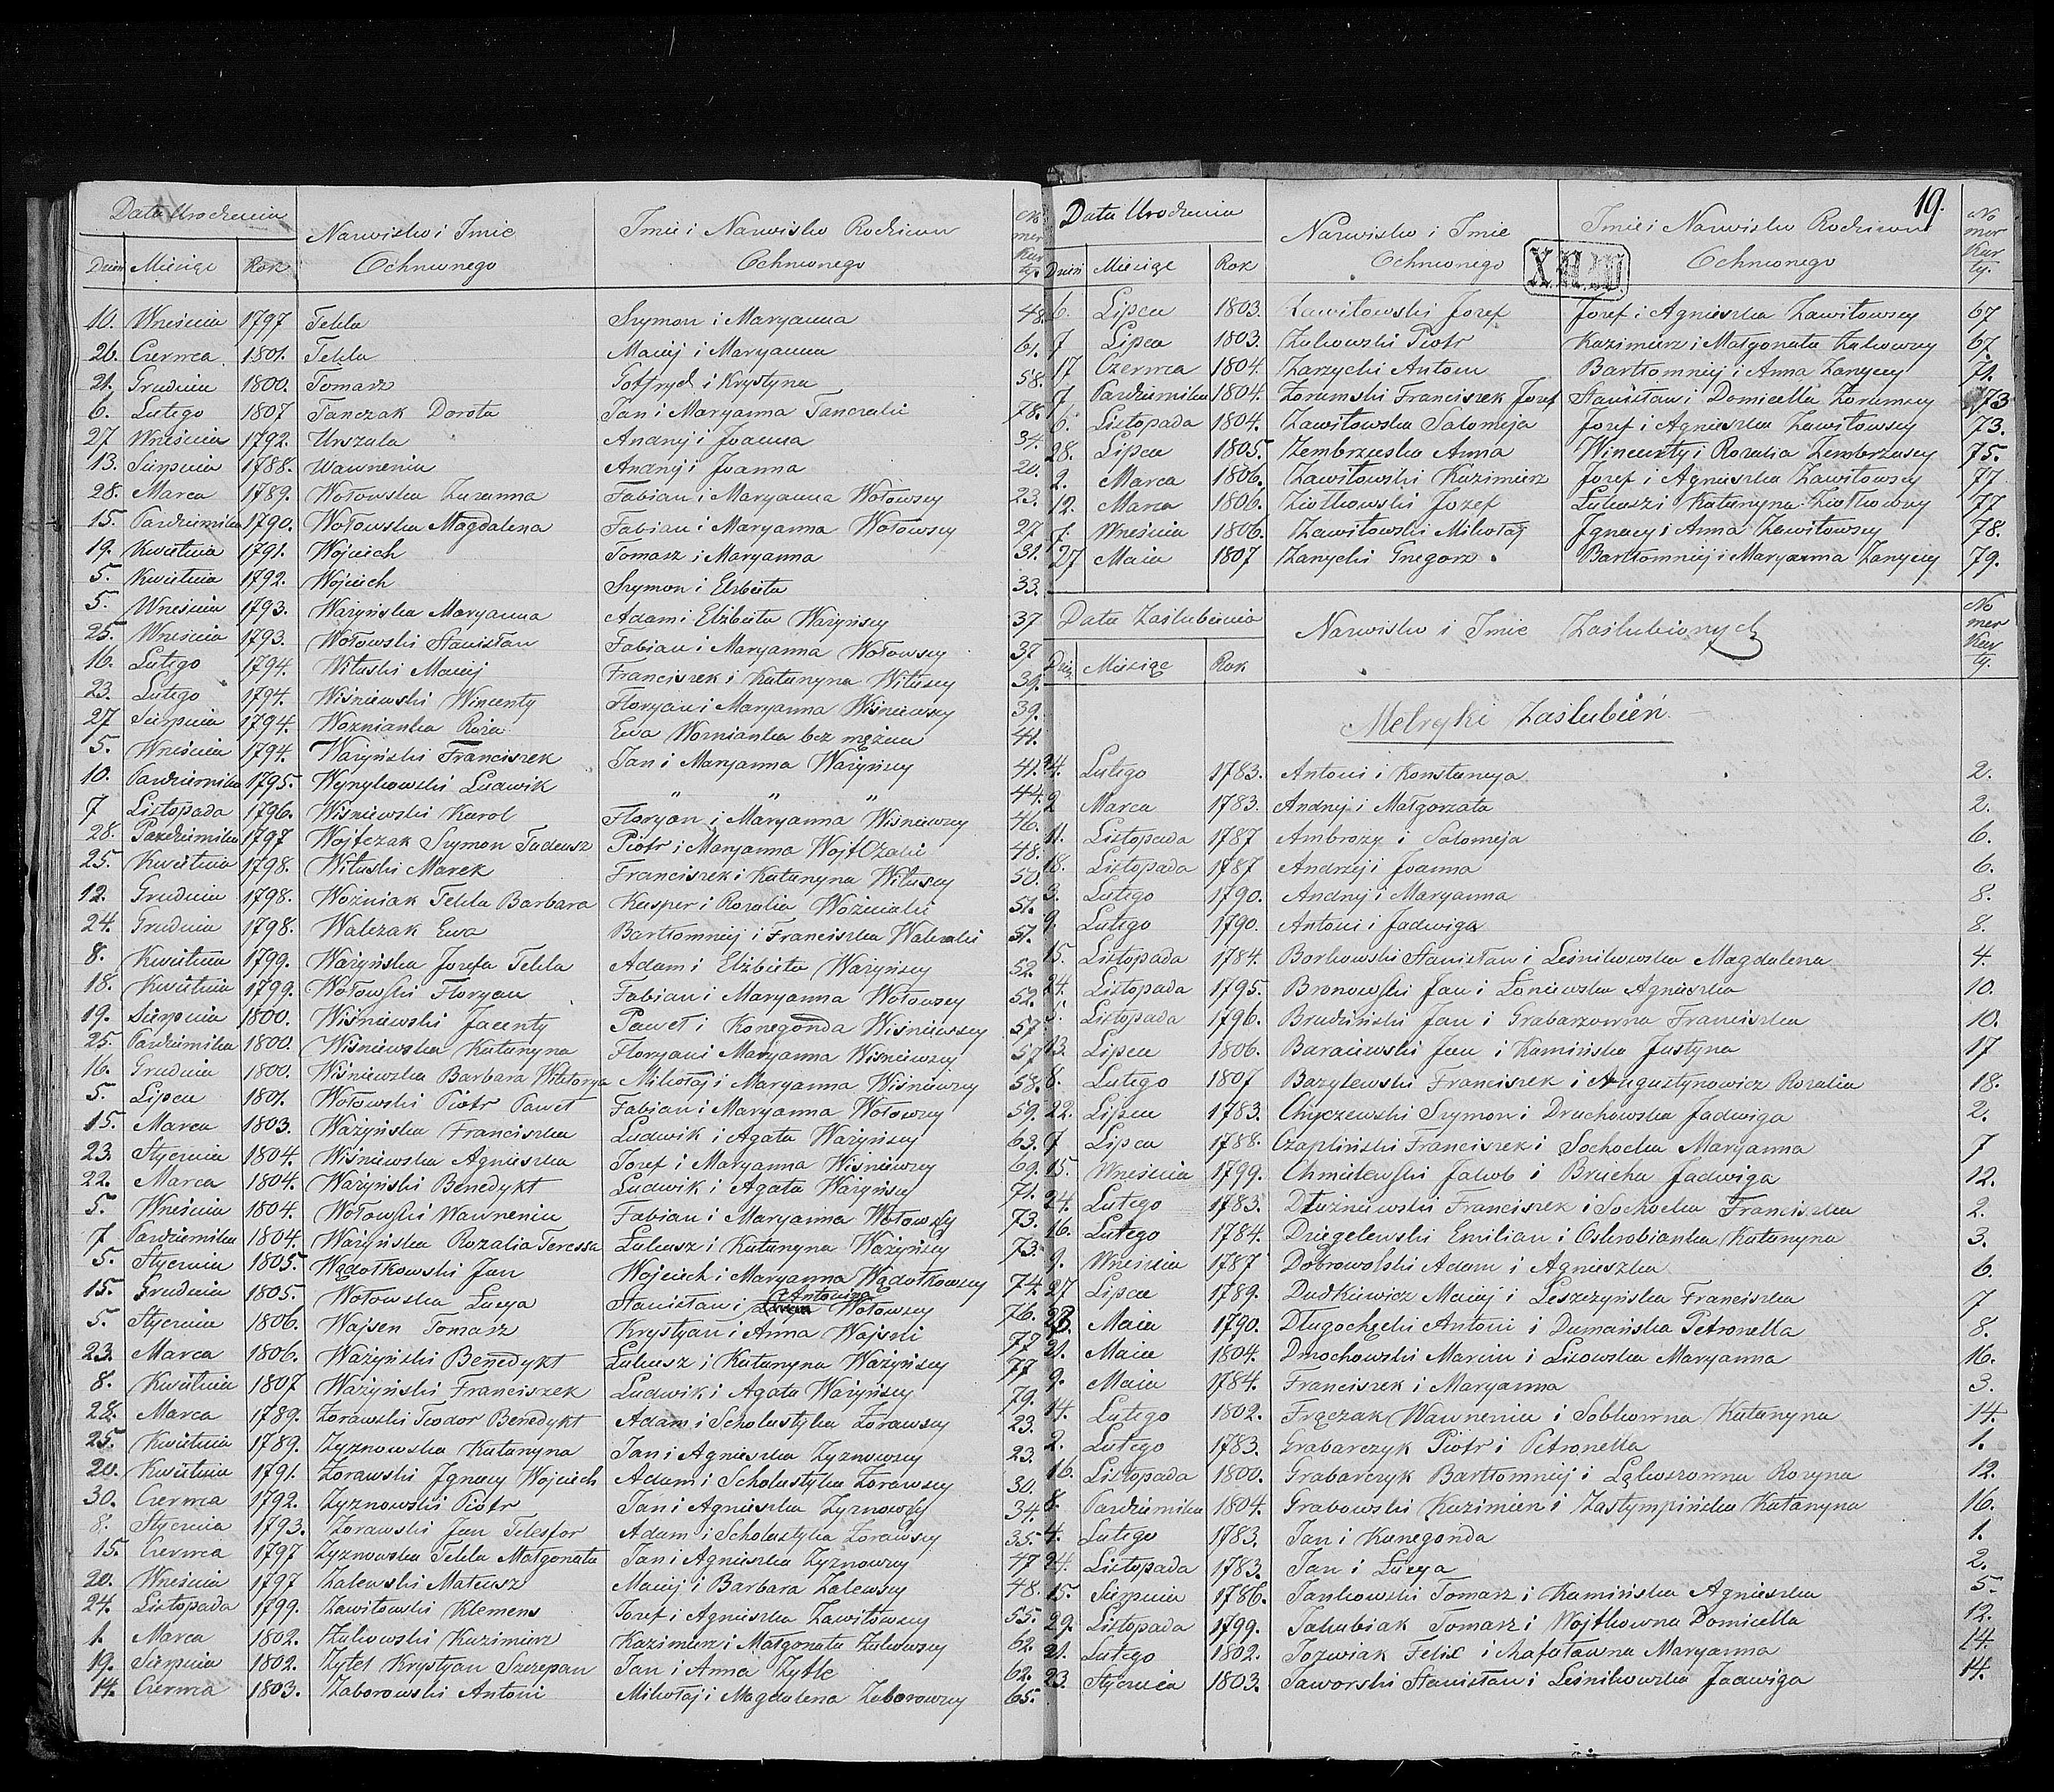 Data Urodzenia
Nazwisko i Imie Ochrzconego
Imie i Nazwisko Rodziców Ochrzconego
Nomer Karty.
Dzień Miesiąc Rok
10. Września 1797 Tekla Szymon i Maryanna 48.
26. Czerwca 1801. Tekla Maciej i Maryanna 61.
21. Grudnia 1800. Tomasz Gottfryd i Krystyna 58.
6. Lutego 1807 Tanczak Dorota Jan i Maryanna Tanczaki 78.
27 Września 1792. Urszula Andrzej i Joanna 34.
13. Sierpnia 1788. Wawrzeniu Andrzej i Joanna 20.
28. Marca 1789. Wołowska Zuzanna Fabian i Maryanna Wołowscy 23.
15. Października 1790. Wołowska Magdalena Fabian i Maryanna Wołowscy 27.
19. Kwietnia 1791. Wojciech Tomasz i Maryanna 31.
5. Kwietnia 1792. Wojciech Szymon i Elżbieta 33.
5. Września 1793. Ważyńska Maryanna Adam i Elżbieta Ważyńscy 37
25. Września 1793. Wołowski Stanisław Fabian i Maryanna Wołowscy 37
16. Lutego 1794. Wituski Maciej Franciszek i Katarzyna Wituscy 39.
23. Lutego 1794. Wiśniewski Wincenty Floryan i Maryanna Wiśniewscy 39.
27 Sierpnia 1794. Woznianka Róża Ewa Woznianka bez mężna 41.
5. Września 1794. Ważyński Franciszek Jan i Maryanna Ważyńscy 41.
10. Października 1795. Wyrzykowski Ludwik " " " 44.
7 Listopada 1796. Wiśniewski Karol Floryan i Maryanna Wiśniewscy 46.
28. Października 1797 Wojtczak Szymon Tadeusz Piotr i Maryanna Wojtczaki 48.
25. Kwietnia 1798. Wituski Marek Franciszek i Katarzyna Wituscy 50.
12. Grudnia 1798. Wozniak Tekla Barbara Kasper i Rozalia Wozniaki 51.
24. Grudnia 1798. Walczak Ewa Bartłomniej i Franciszka Walczaki 51.
8. Kwietnia 1799. Ważyńska Jozefa Tekla Adam i Elżbieta Ważyńscy 52.
18. Kwietnia 1799. Wołowski Floryan Fabian i Maryanna Wołowscy 52.
19. Sierpnia 1800. Wiśniewski Jacenty Paweł i Konegonda Wiśniewscy 57
25. Października 1800. Wiśniewska Katarzyna Floryan i Maryanna Wiśniewscy 57
16. Grudnia 1800. Wiśniewska Barbara Wiktorya Mikołaj i Maryanna Wiśniewscy 58.
5. Lipca 1801. Wołowski Piotr Paweł Fabian i Maryanna Wołowscy 59.
15. Marca 1803. Ważyńska Franciszka Ludwik i Agata Ważyńscy 63.
23. Stycznia 1804. Wiśniewska Agnieszka Jozef i Maryanna Wiśniewscy 69.
22. Marca 1804. Ważyński Benedykt Ludwik i Agata Ważyńscy 71.
5. Września 1804. Wołowski Wawrzeniu Fabian i Maryanna Wołowscy 73.
7 Października 1804. Ważyńska Rozalia Teressa Łukasz i Katarzyna Ważyńscy 73.
5. Stycznia 1805. Wądołkowski Jan Wojciech i Maryanna Wądołkowscy 74.
15. Grudnia 1805. Wołowska Lucya Stanisław i Antonina Wołowscy 76.
5. Stycznia 1806. Wajsen Tomasz Krystyan i Anna Wajseni 77
23. Marca 1806. Ważyński Benedykt Łukasz i Katarzyna Ważyńscy 77
8. Kwietnia 1807 Ważyński Franciszek Ludwik i Agata Ważyńscy 79.
28. Marca 1789. Zorawski Teodor Benedykt Adam i Scholastyka Zorawscy 23.
25. Kwietnia 1789. Zyznowska Katarzyna Jan i Agnieszka Zyznowscy 23.
20. Kwietnia 1791. Zorawski Jgnacy Wojciech Adam i Scholastyka Zorawscy 30.
30. Czerwca 1792. Zyznowski Piotr Jan i Agnieszka Zyznowscy 34.
8. Stycznia 1793. Zorawski Jan Telesfor Adam i Scholastyka Zorawscy 35.
15. Czerwca 1797 Zyznowska Tekla Małgorzata Jan i Agnieszka Zyznowscy 47
20. Września 1797 Zalewski Mateusz Maciej i Barbara Zalewscy 48.
24. Listopada 1799. Zawitowski Klemens Jozef i Agnieszka Zawitowscy 55.
1. Marca 1802. Zukowski Kazimierz Kazimierz i Małgorzata Zukowscy 62.
19. Sierpnia 1802. Zytel Krystyan Szczepan Jan i Anna Zytle 62.
14. Czerwca 1803. Zaborowski Antoni Mikołaj i Magdalena Zaborowscy 65.
19.
Data Urodzenia
Nazwisko i Imie Ochrzconego
Imie i Nazwisko Rodziców Ochrzconego
Nomer Karty.
Dzień Miesiąc Rok
6. Lipca 1803. Zawitowski Jozef Jozef i Agnieszka Zawitowscy 67
7 Lipca 1803. Zukowski Piotr Kazimierz i Małgorzata Zukowscy 67.
17 Czerwca 1804. Zarzycki Antoni Bartłomniej i Anna Zarzyccy 71.
7 Października 1804. Zoramski Franciszek Jozef Stanisław i Domicella Zoramscy 73
6. Listopada 1804. Zawitowska Salomeja Jozef i Agnieszka Zawitowscy 73.
28. Lipca 1805. Zembrzuska Anna Wincenty i Rozalia Zembrzuscy 75.
2. Marca 1806. Zawitowski Kazimierz Jozef i Agnieszka Zawitowscy 77
12. Marca 1806. Ziołkowski Jozef Łukasz i Katarzyna Ziołkowscy 77
7. Września 1806. Zawitowski Mikołaj Jgnacy i Anna Zawitowscy 78.
27 Maia 1807 Zarzycki Grzegorz. Bartłomniej i Maryanna Zarzyccy 79.
Data Zaślubienia
Nazwisko i Imie Zaślubionych
Nomer Karty.
Dzień Miesiąc Rok
Metryki Zaślubień.
24. Lutego 1783. Antoni i Konstancya 2.
2 Marca 1783. Andrzej i Małgorzata 2.
11. Listopada 1787 Ambrozy i Salomeja 6.
18. Listopada 1787 Andrzej i Joanna 6.
3. Lutego 1790. Andrzej i Maryanna 8.
9. Lutego 1790. Antoni i Jadwiga 8.
15. Listopada 1784. Borkowski Stanisław i Leśnikowska Magdalena 4.
24. Listopada 1795. Bronowski Jan i Łoniewska Agnieszka 10.
Listopada 1796. Brudziński Jan i Grabarzowna Franciszka 10.
13. Lipca 1806. Baraniewski Jan i Kamińska Justyna 17
8. Lutego 1807 Bazylewski Franciszek i Augustynowicz Rozalia 18.
22. Lipca 1783. Chyczewski Szymon i Druchowska Jadwiga 2.
7 Lipca 1788. Czapliński Franciszek i Sochocka Maryanna 7
15. Września 1799. Chmielewski Jakob i Brucka Jadwiga 12.
24. Lutego 1783. Dłużniewski Franciszek i Sochocka Franciszka 2.
16. Lutego 1784. Dziegelewski Emilian i Oskrobianka Katarzyna 3.
9. Września 1787 Dobrowolski Adam i Agnieszka 6.
27 Lipca 1789. Dudkiewicz Maciej i Leszczyńska Franciszka 7
23. Maia 1790. Długochęcki Antoni i Dumańska Petronella 8.
21. Maia 1804. Dmochowski Marcin i Lisowska Maryanna 16.
9. Maia 1784. Franciszek i Maryanna 3.
14. Lutego 1802. Frączak Wawrzeniu i Sobkowna Katarzyna 14.
2. Lutego 1783. Grabarczyk Piotr i Petronella 1.
16. Listopada 1800. Grabarczyk Bartłomniej i Rozyna 12.
8. Października 1804. Grabowski Kazimierz i Zastympińska Katarzyna 16.
4. Lutego 1783. Jan i Kunegonda 1.
24. Listopada 1783. Jan i Lucya 2.
15. Sierpnia 1786. Jankowski Tomasz i Kamińska Agnieszka 5.
29. Listopada 1799. Jakubiak Tomasz i Wojtkowna Domicella 12.
21. Lutego 1802. Jozwiak Felix i Rafałowna Maryanna 14.
23. Stycznia 1803. Jaworski Stanisław i Leśnikowska Jadwiga 14.